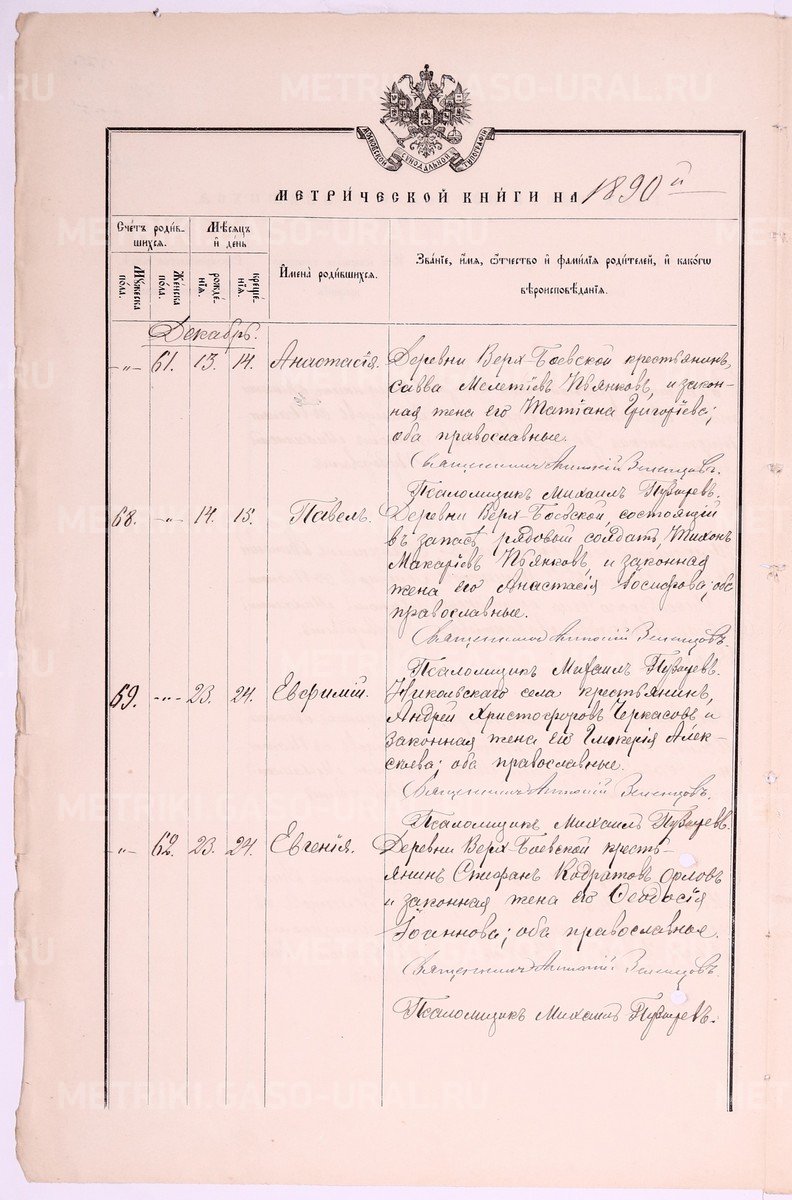 METRIKI.GASO-URAL.RU
МОСКОВСКОЙ СѴНОДАЛЬНОЙ ТИПОГРАФІИ
МЕТРИЧЕСКОЙ КНИГИ НА 1890 й
Счетъ родив-
шихся.
Мѣсяцъ
и день
Имена родившихся.
Званіе, имя, отчество и фамилія родителей, и какогω
вѣроисповѣданія.
Мужеска
пола.
Женска
пола.
рожде-
нія.
креще-
нія.
Декабрь.
„ 61. 13. 14. Анастасія. Деревни Верх-Боевской крестьянинъ,
Савва Мелетіевъ Пьянковъ, и закон-
ная жена его Татіана Григоріева;
оба православные.
Священникъ Зеленцовъ.
Псаломщикъ Михаилъ
68. „ 14. 15. Павелъ. Деревни Верх-Боевской, состоящій
въ запасѣ рядовый солдатъ, Тихонъ
Макаріевъ Пьянковъ, и законная
жена его Анастасія Іосифова; оба
православные.
Священникъ Зеленцовъ.
Псаломщикъ Михаилъ
69. „ 23. 24. Евфимій. Никольскаго села крестьянинъ,
Андрей Христофоровъ Черкасовъ и
законная жена его Гликерія Алек-
сѣева; оба православные.
Священникъ Зеленцовъ.
Псаломщикъ Михаилъ
„ 62. 23. 24. Евгенія. Деревни Верх-Боевской кресть-
янинъ Стефанъ Кодратовъ Орловъ
и законная жена его Ѳеодосія
Іоаннова; оба православные.
Священникъ Зеленцовъ.
Псаломщикъ Михаилъ